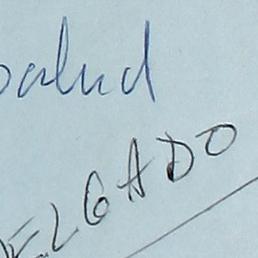 salud
DELGADO